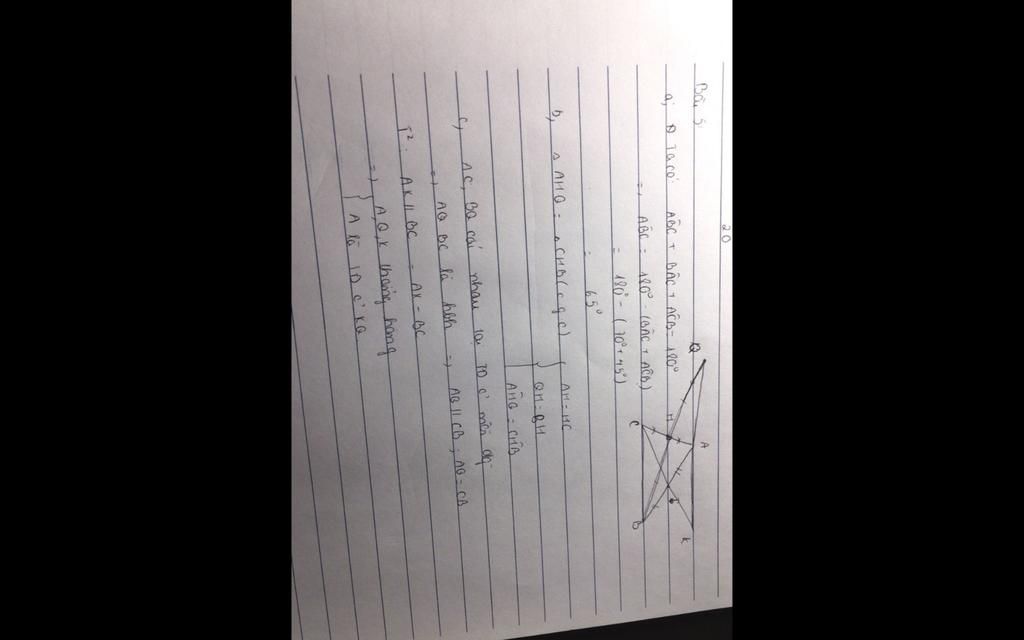 20
Bài 5
Q A K
H
C B
a, Ta có: ABC + BAC + ACB = 180°
=> ABC = 180° - (BAC + ACB)
= 180° - (70° + 45°)
= 65°
b, △ AHQ = △ CHB (c g c) { AH = HC
QH = BH
AHQ = CHB
c, AC, BQ cắt nhau tại TĐ c' mỗi đg
=> AQ BC là hbh => AQ // CB ; AQ = CB
T²: AK // BC = AK = BC
=> A, Q, K thẳng hàng
A là TĐ c' KQ